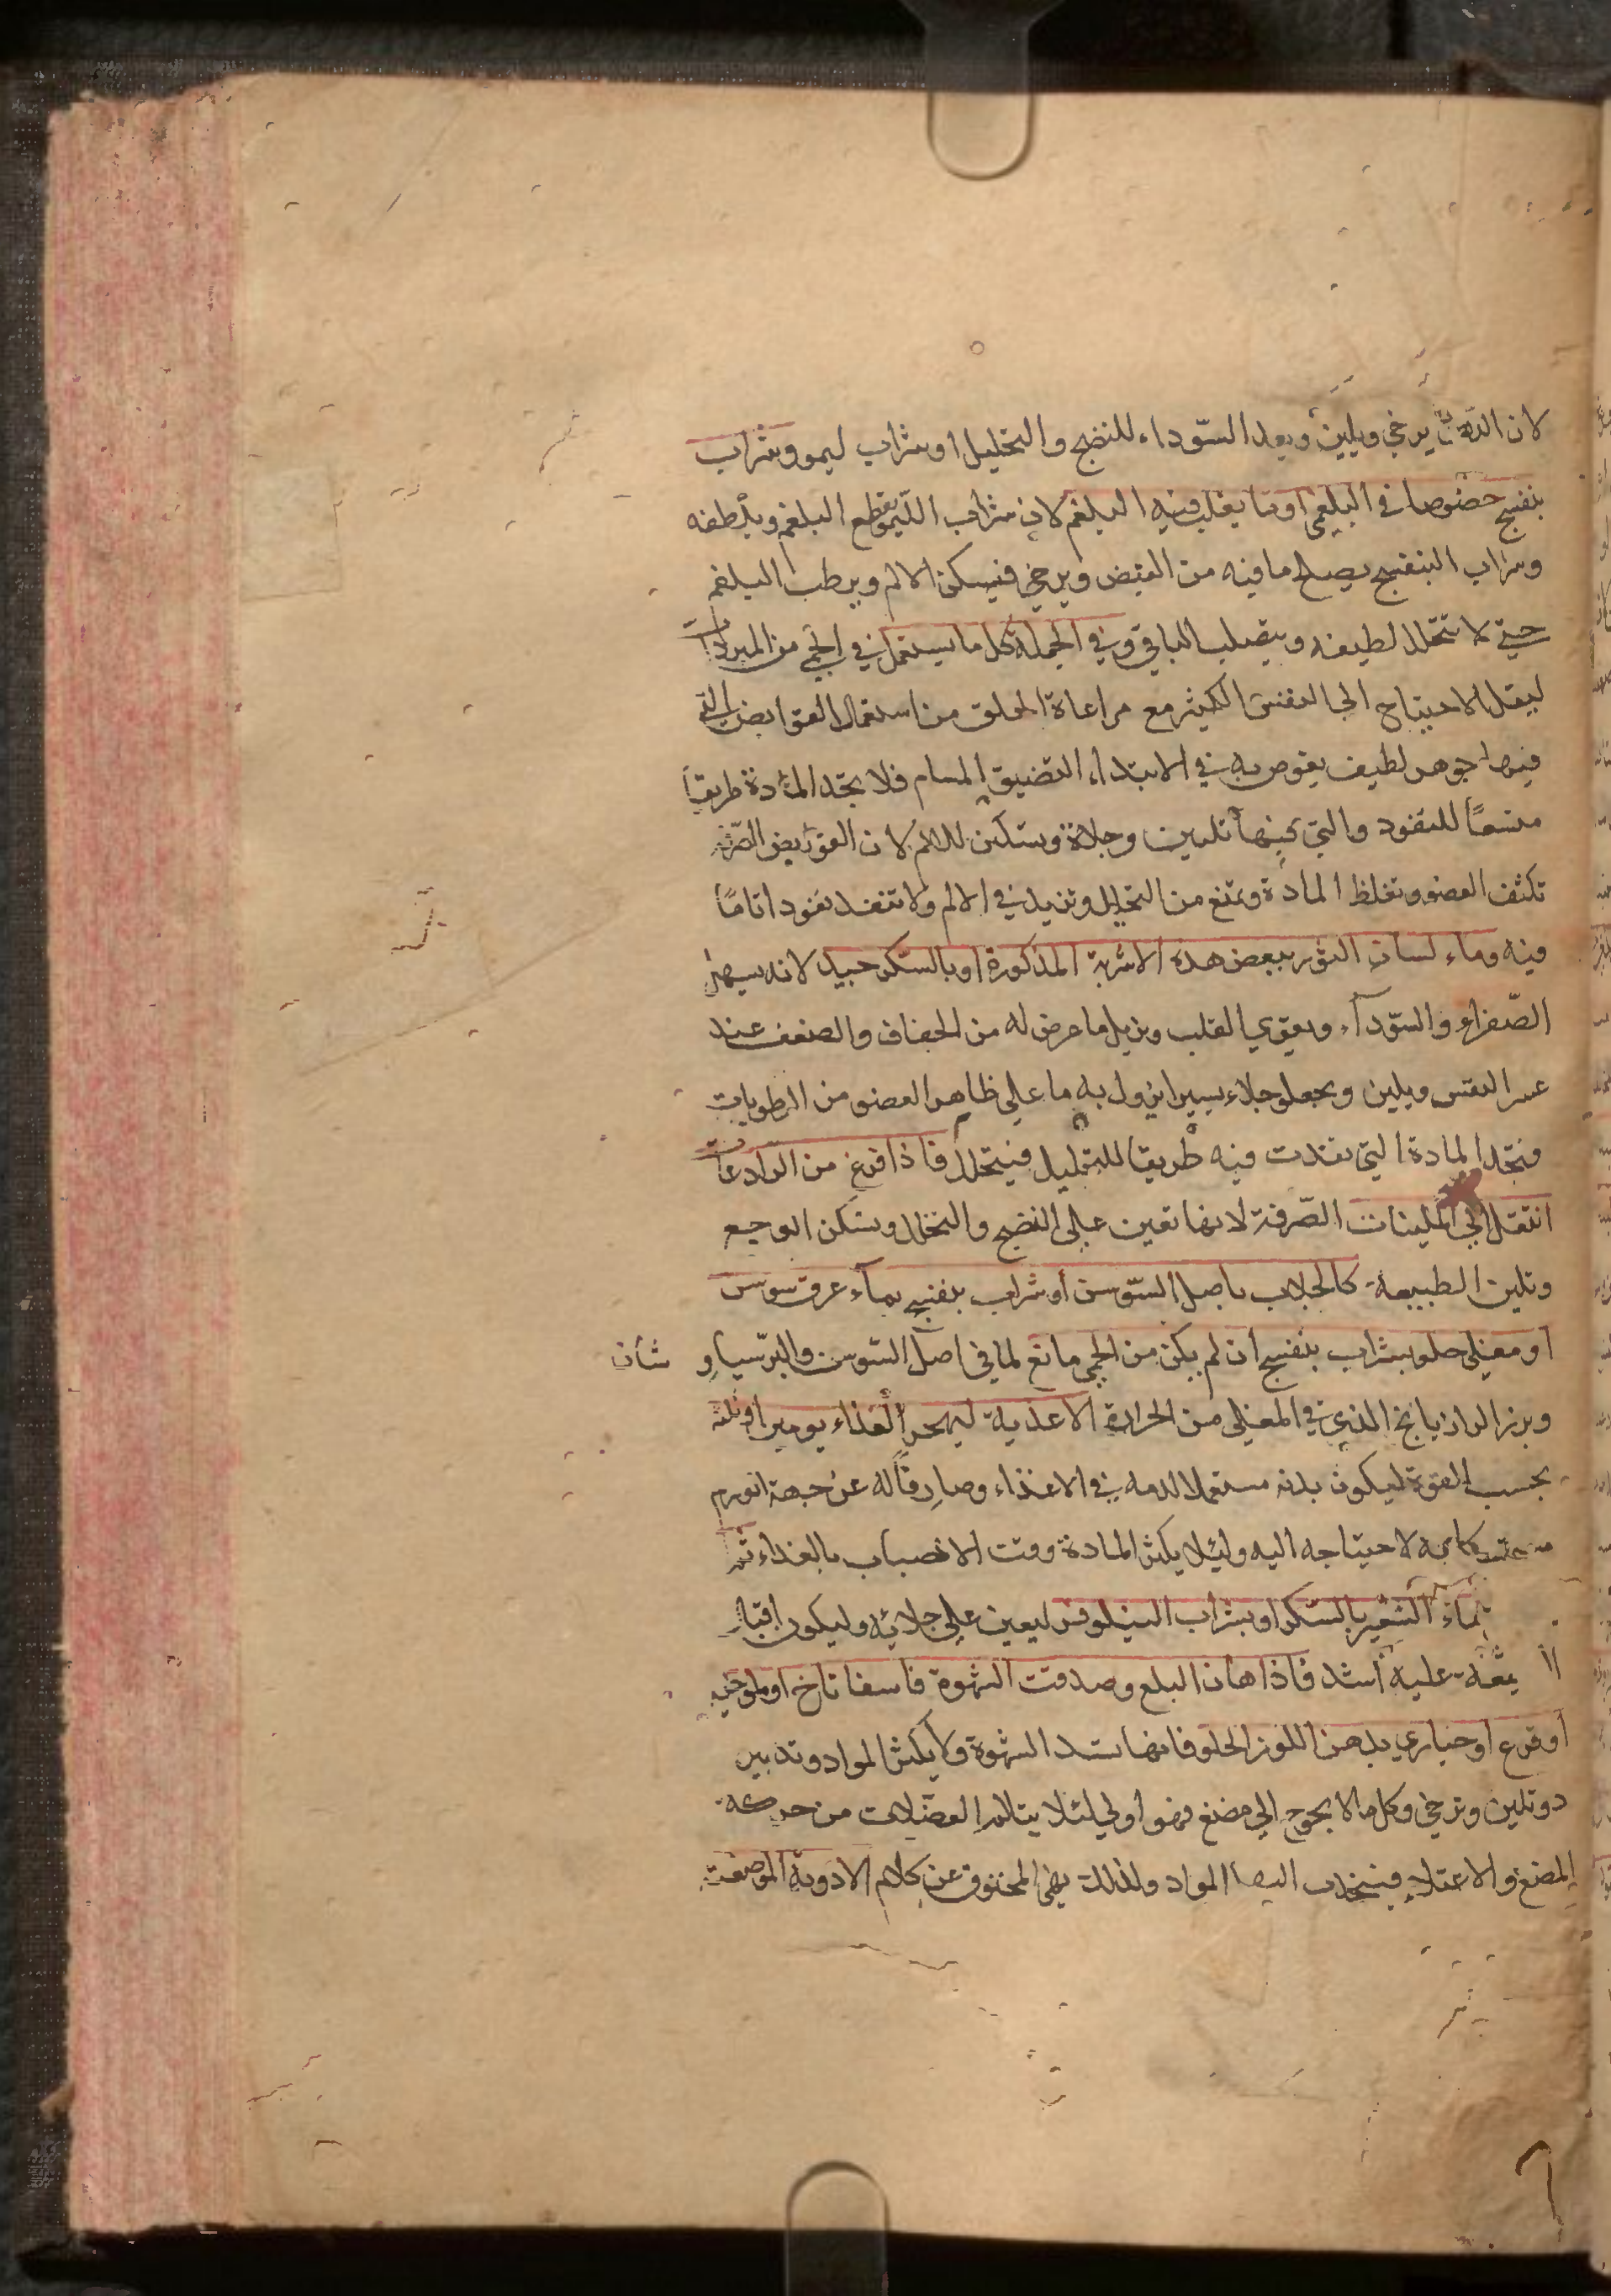 لان الدهن يرخي ويلين ويعد السوداء للنضج والتحليل او شراب ليمو وشراب
بنفسج خصوصا في البلغمي او ما يغلب فيه البلغم لان شراب الليمو يقطع البلغم ويلطفه
وشراب البنفسج يصلح ما فيه من القبض ويرخي فيسكن الالم ويرطب البلغم
حتى لا تتحلل لطيفه ويتصلب الباقي وفي الجملة كل ما يستعمل في الحمى من المبردات
ليقل الاحتياج الى التنفس الكثير مع مراعاة الحلق من استعمال القوابض التي
فيها جوهر لطيف يغوص به في الابتداء لتضيق المسام فلا تجد المادة طريقا
متسعا للنفوذ والتي فيها تليين وجلاء وتسكين للالم لان القوابض الصرفة
تكثف العضو وتغلظ المادة وتمنع من التحليل وتزيد في الالم ولا تنفذ نفوذا تاما
فيه وماء لسان الثور ببعض هذه الاشربة المذكورة او بالسكر جيد لانه يسهل
الصفراء والسوداء ويقوي القلب ويزيل ما عرض له من الجفاف والضعف عند
عسر النفس ويلين ويجلو جلاء يسيرا يزول به ما على ظاهر العضو من الرطوبات
فتجد المادة التي نفذت فيه طريقا للتحليل فيتحلل فاذا فرغ من الرادعات
انتقل الى الملينات الصرفة لانها تعين على النضج والتحلل وتسكن الوجع
وتلين الطبيعة كالجلاب باصل السوسن أو شراب بنفسج بماء عرق سوس
او مغلي حلو بشراب بنفسج ان لم يكن من الحمى مانع لما في اصل السوسن والبرسياوشان
وبزر الرازيانج الذي في المغلي من الحرارة الاغذية ليهجر الغذاء يومين او ثلثة
بحسب القوة ليكون بدنه مستعملا لدمه في الاغذاء وصارفا له عن جهة الورم
لاحتياجه اليه ولئلا يكثر المادة وقت الانصباب بالغذاء ثم
بماء الشعير بالسكر او بشراب النيلوفر ليعين على جلائه وليكون اقبال
عليه اشد فاذا هان البلع وصدقت الشهوة فاسفاناخ او ملوخيه
او قرع او خيار بدهن اللوز الحلو فانها تسد الشهوة ولا يكثر المواد وتدبير
وتلين وترخي وكل ما لا يحوج الى مضغ فهو اولى لئلا يتالم العضلات من حركة
المضغ والاعتلاء فينجذب اليها المواد ولذلك نهي المخنوق عن كلام الادوية الموضعية